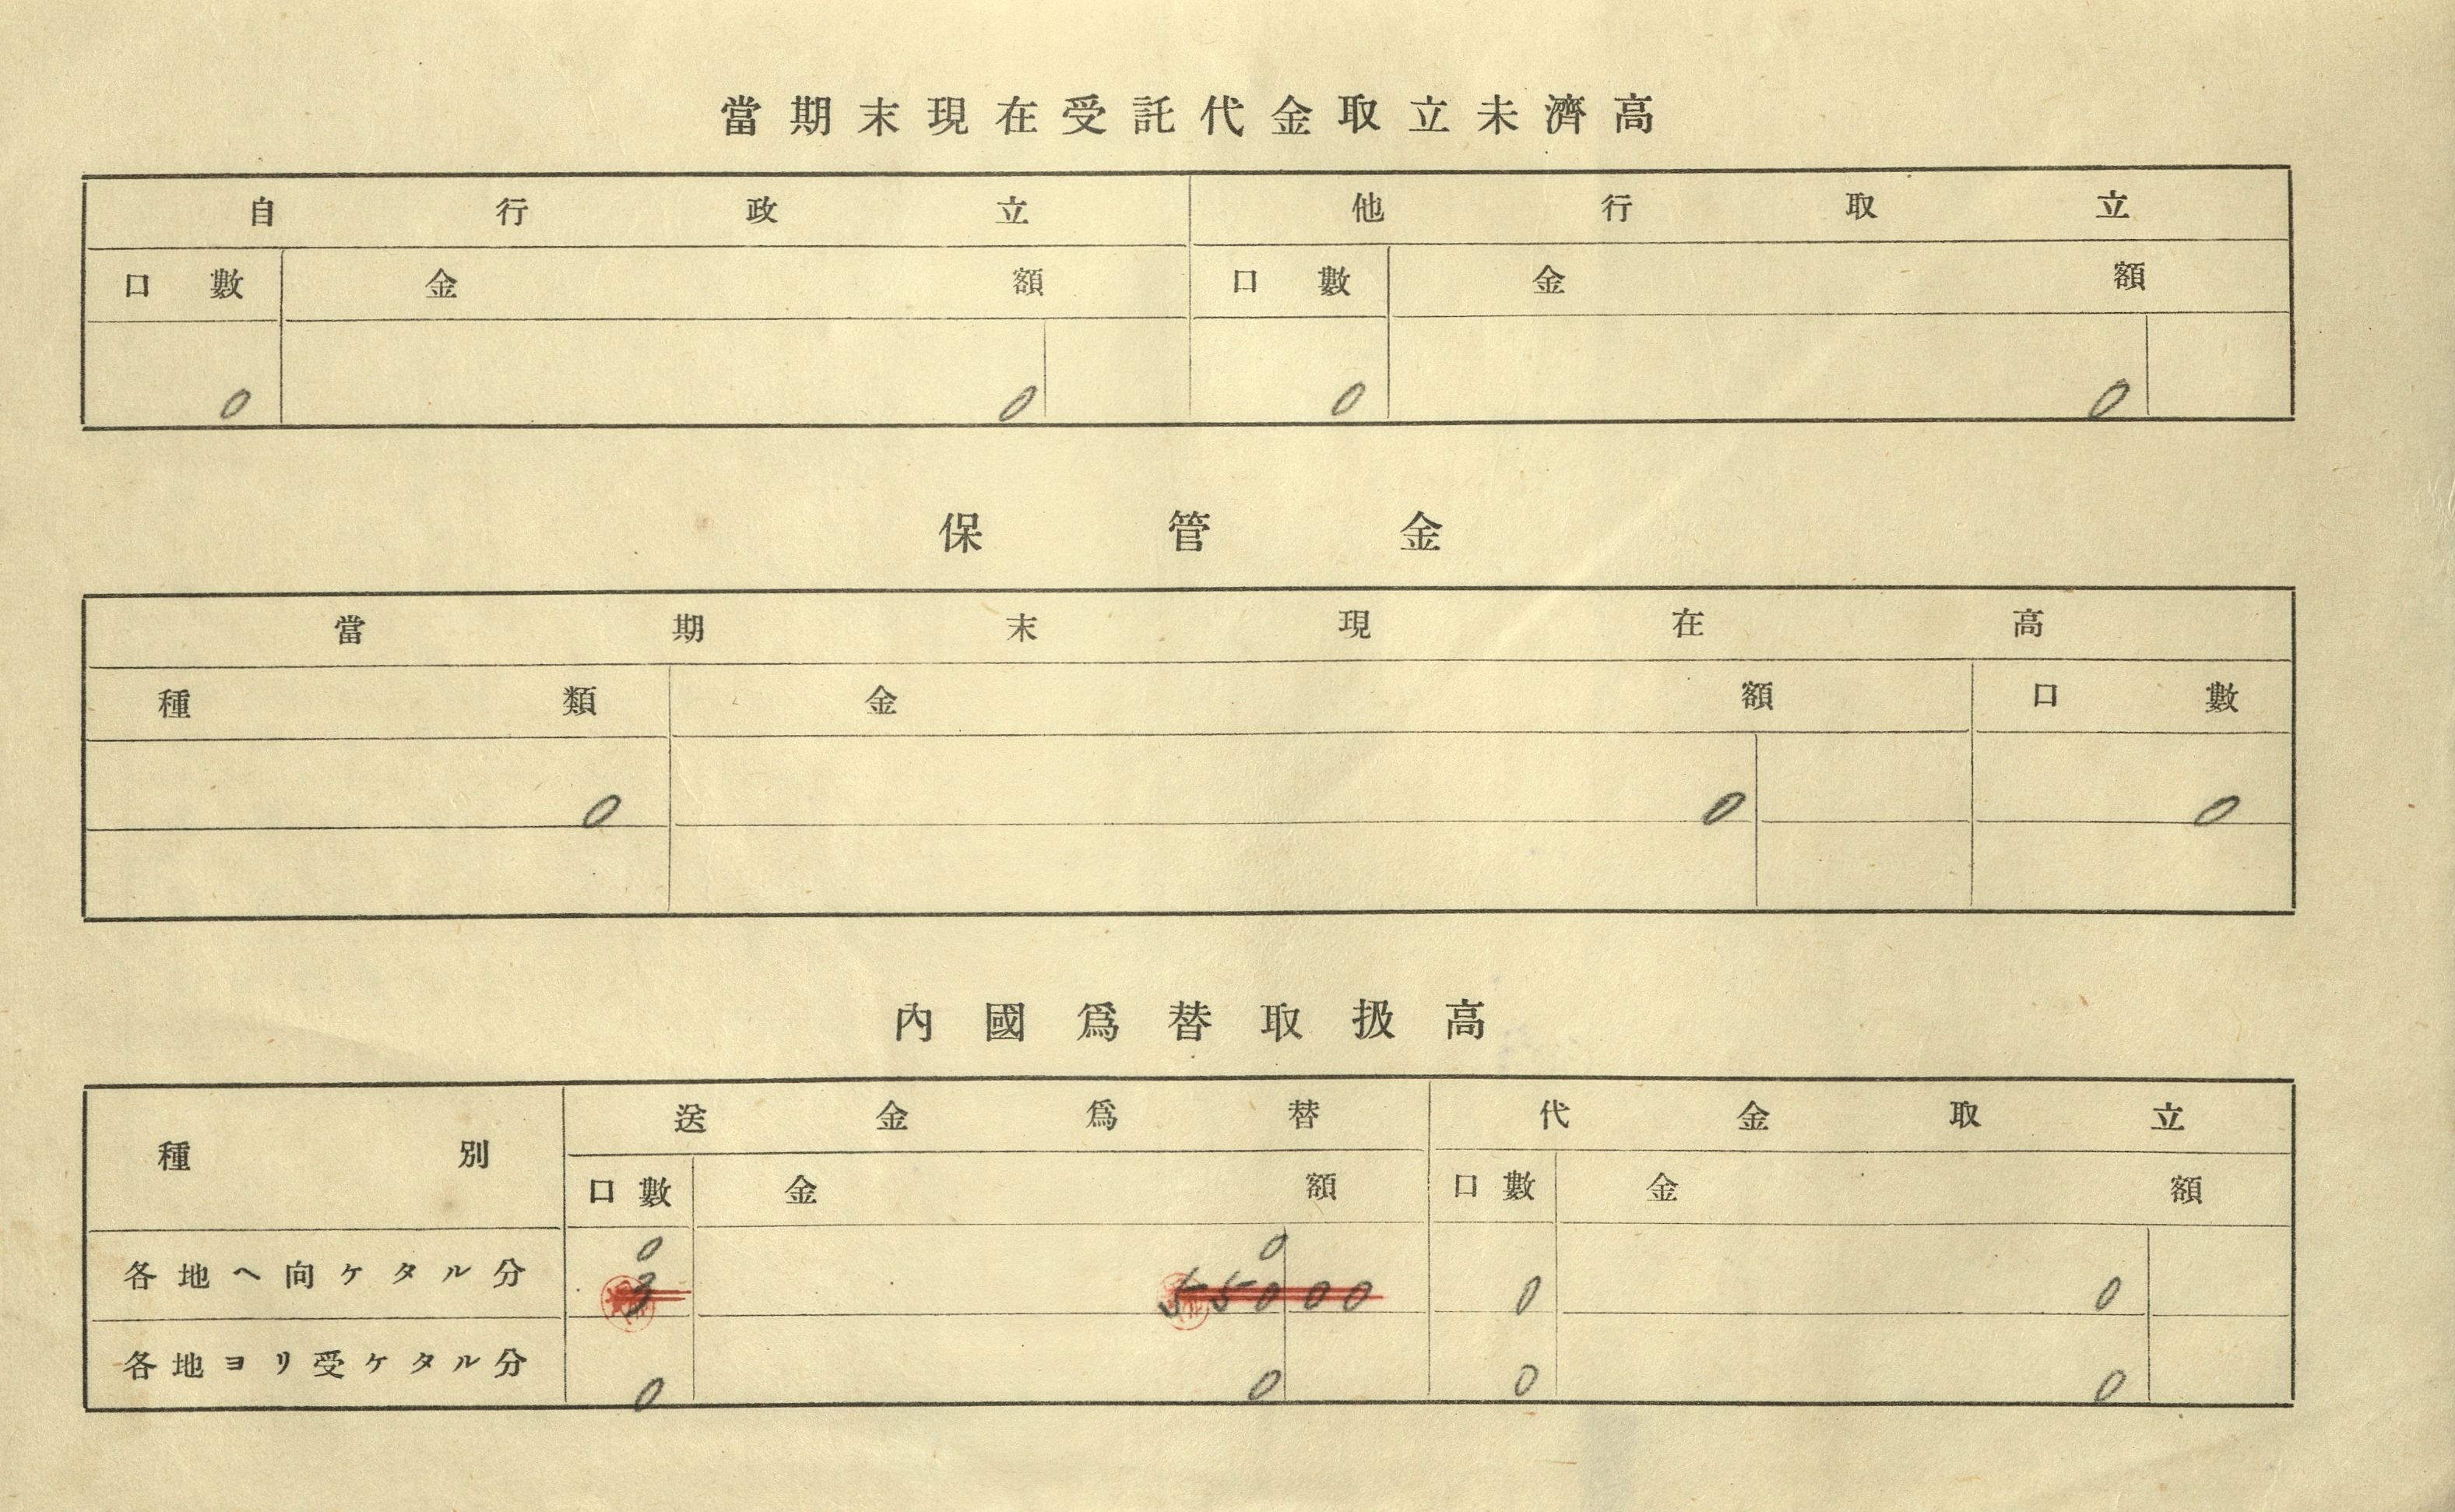 當期末現在受託代金取立未濟高
自行政立 他行取立
口數 金額 口數 金額
0 0 0 0
保管金
當期末現在高
種類 金額 口數
0 0 0
內國爲替取扱高
種別 送金爲替 代金取立
口數 金額 口數 金額
0 0
各地ヘ向ケタル分 3 55000 0 0
各地ヨリ受ケタル分 0 0 0 0